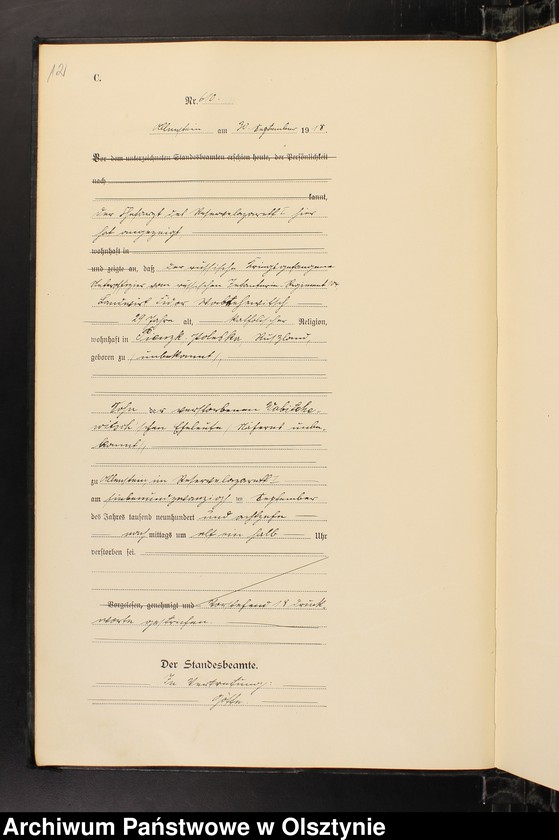 121
C.
Nr. 610.
Allenstein am 30. September 1918.
Vor dem unterzeichneten Standesbeamten erschien heute, der Persönlichkeit
nach
kannt,
der Chefarzt des Reservelazaretts I hier
hat angezeigt
wohnhaft in
und zeigte an, daß der russische Kriegsgefangene
vom russischen Infanterie Regiment
Landwirt
29 Jahre alt, katholischer Religion,
wohnhaft in Rußland,
geboren zu (unbekannt),
Sohn der verstorbenen
schen Eheleute (Näheres unbe-
kannt),
zu Allenstein, im Reservelazarett I
am siebenundzwanzigsten September
des Jahres tausend neunhundert und achtzehn
nachmittags um elf ein halb Uhr
verstorben sei.
Vorgelesen, genehmigt und Vorstehend 18 Druck-
worte gestrichen.
Der Standesbeamte.
In Vertretung:
Archiwum Państwowe w Olsztynie